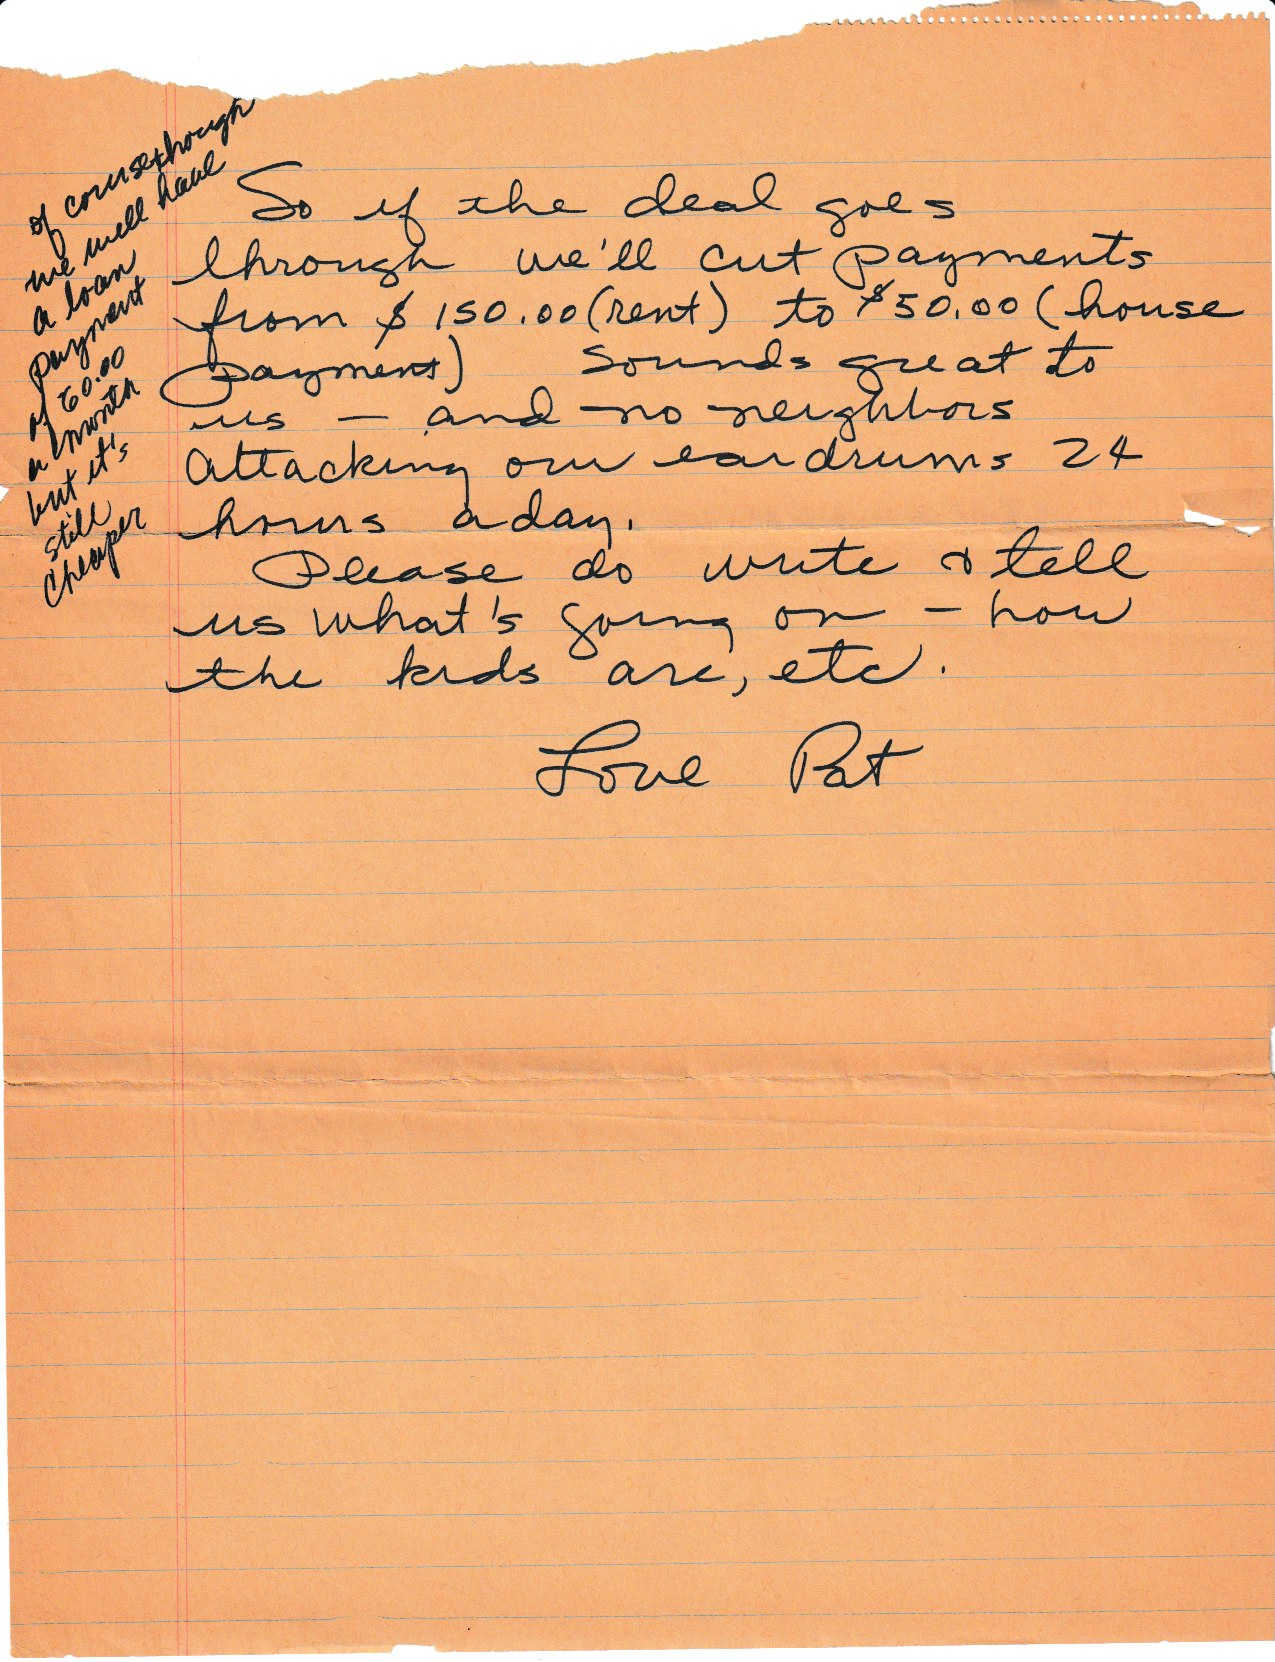 of course though
we will have
a loan
payment
of 60.00
a month
but it's
still
cheaper
So if the deal goes
through we'll cut payments
from $150.00 (rent) to $50.00 (house
payment) Sounds great to
us - and no neighbors
attacking our eardrums 24
hours a day.
Please do write & tell
us what's going on - how
the kids are, etc.
Love Pat